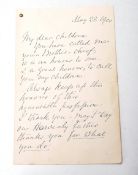 May 28 1901
My dear children
You have called me
your Mother. Chery
is an honour to me
& a great honour, to call
you my children.
Always keep up this
honour of this
profession.
Thank you, may I say
our Heavenly Father
thanks you for what
you do.